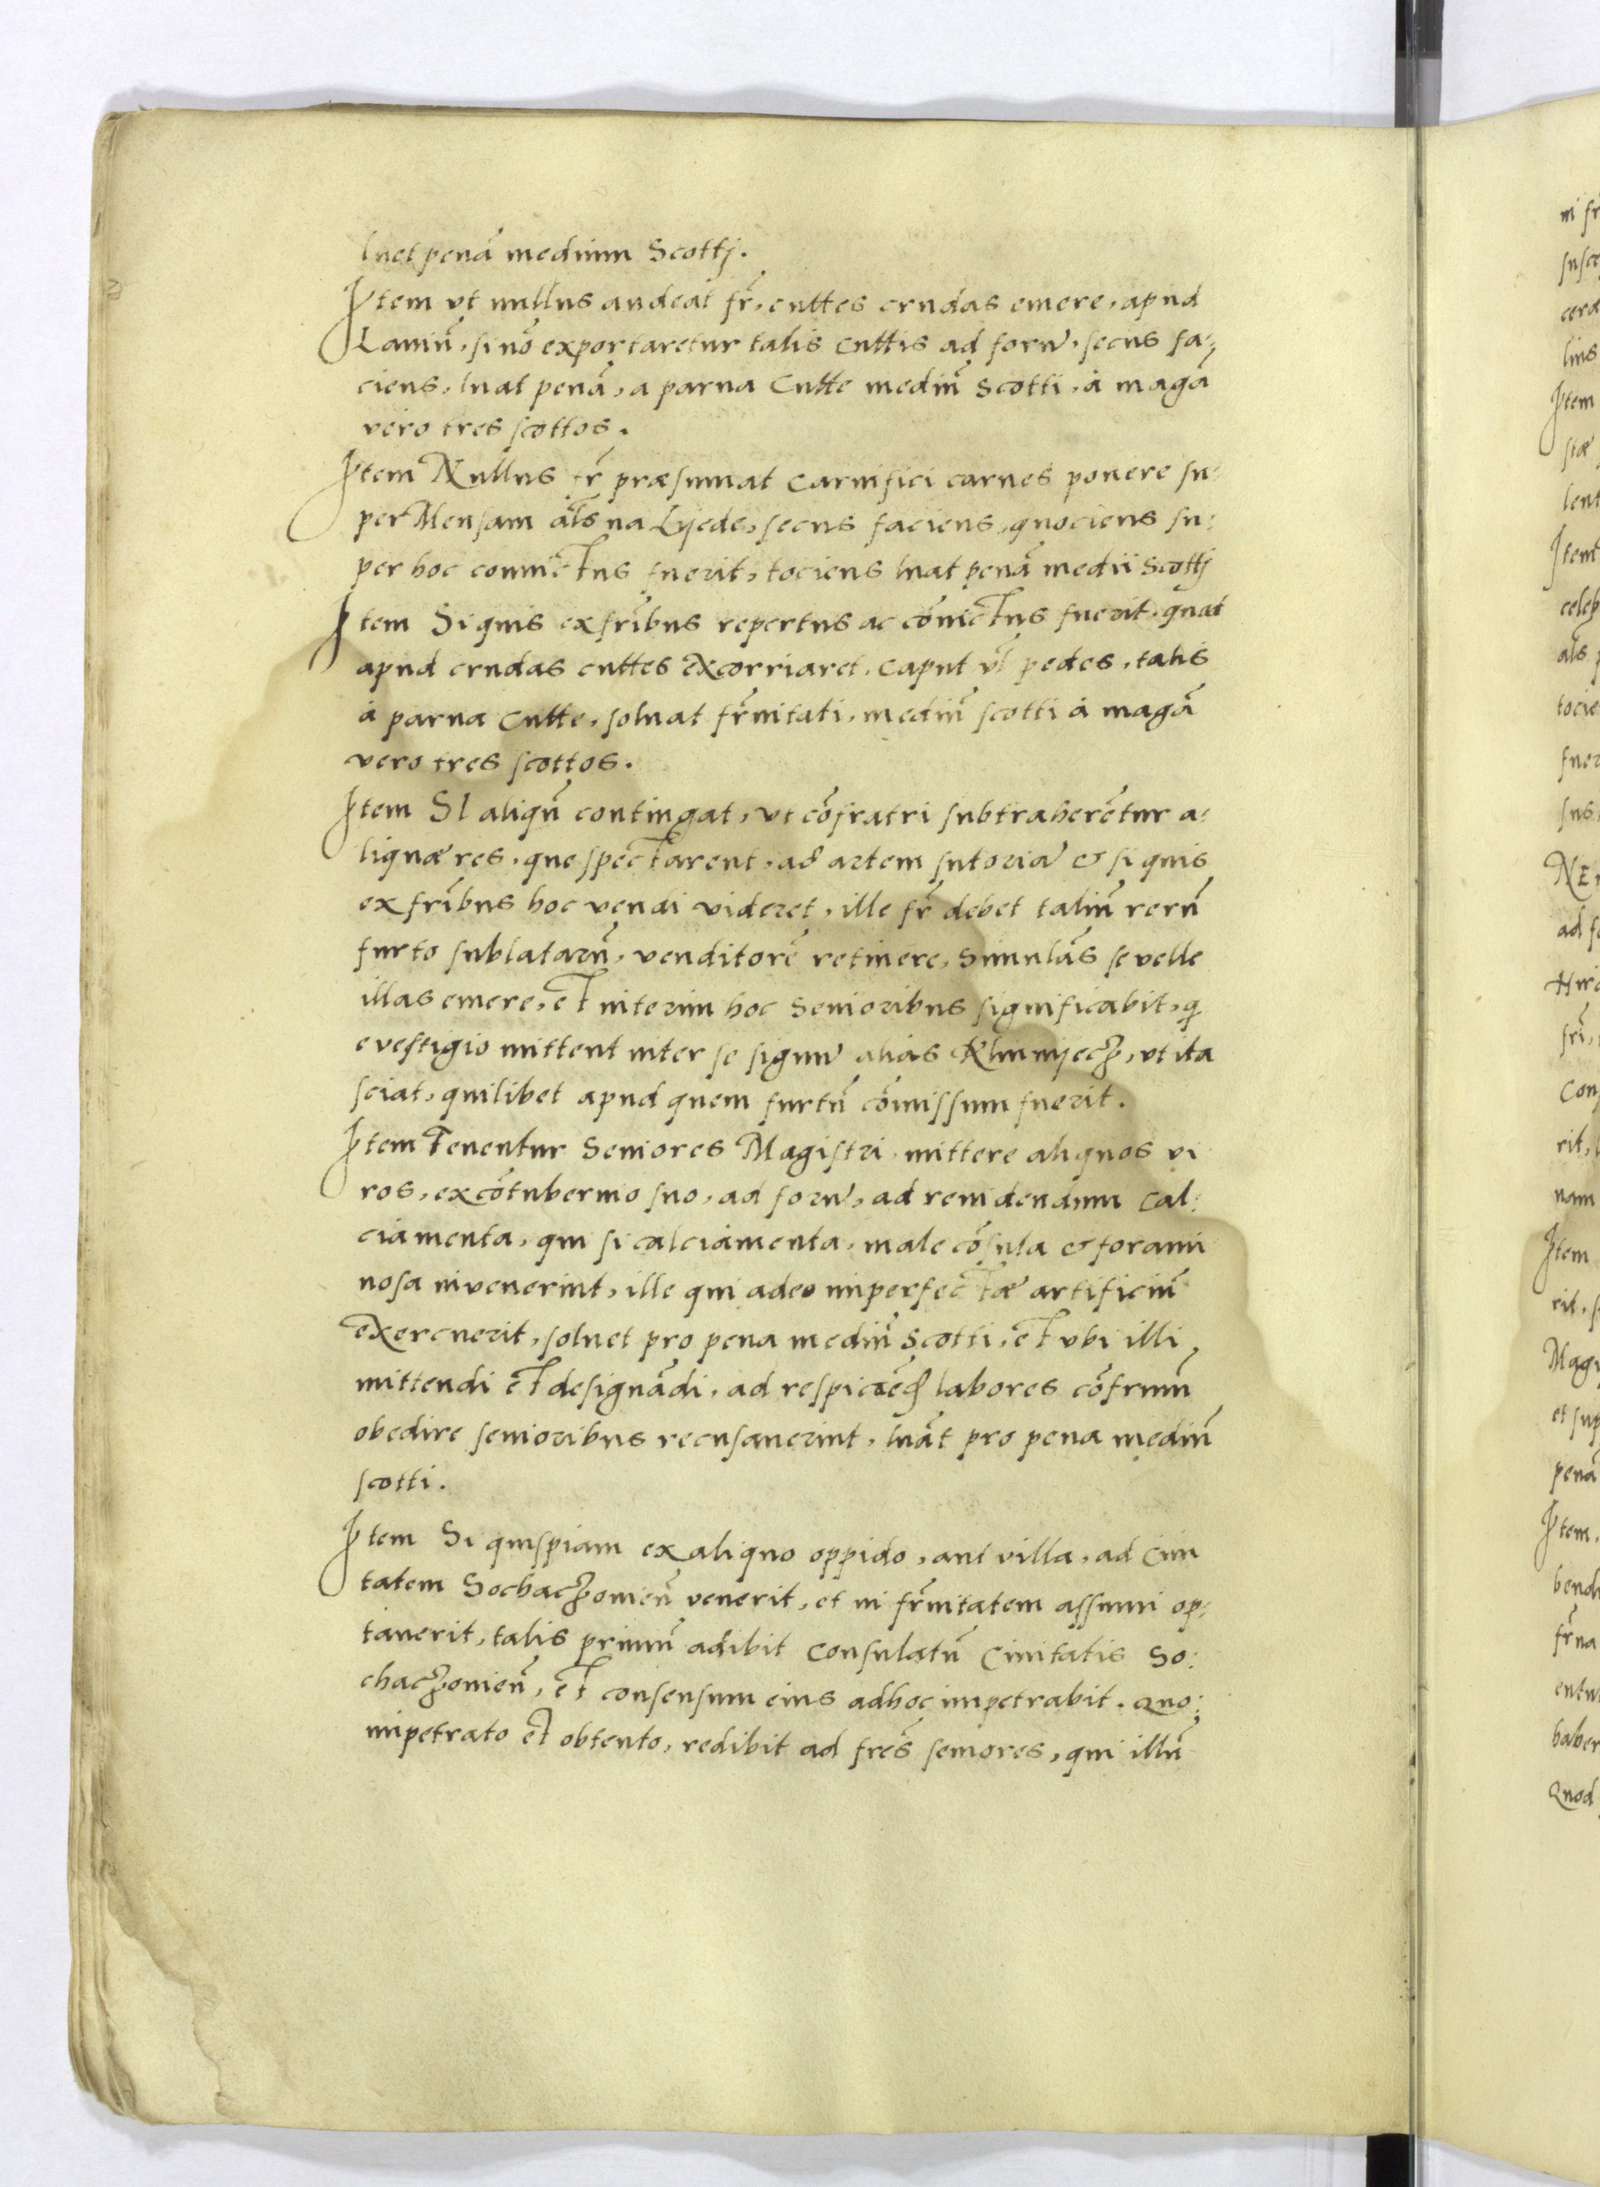 luet penā medium Scotti.
Item vt nullus audeat fr̄, cuttes crudas emere, apud
Laniū, si nō exportaretur talis cuttis ad forū, secus fa-
ciens, luat penā, a parua Cutte mediū Scotti, à magā
vero tres scottos.
Item Nullus fr̄ præsumat carnifici carnes ponere su-
per Mensam als̄ na Lyede, secus faciens, quociens su-
per hoc conuictus fuerit, tociens luat penā medii Scotti
Item Si quis ex frībus repertus ac cōuictus fuerit, quat
apud crudas cuttes excorriaret, caput vl̄ pedes, talis
à parua Cutte, soluat fr̄nitati, mediū scotti à magā
vero tres scottos.
Item SI aliqn̄ contingat, vt cōfratri subtraherētur a-
liquæ res, que spectarent, ad artem sutoriā & si quis
ex frībus hoc vendi videret, ille fr̄ debet taliū rerū
furto sublatarū, venditorē retinere, Simulās se velle
illas emere, et interim hoc Senioribus significabit, q̄
evestigio mittent inter se signū alias
sciat, quilibet apud quem furtū cōmissum fuerit.
Item Tenentur Seniores Magistri, mittere aliquos vi
ros, ex cōtubernio suo, ad forū, ad reuidendum Cal-
ciamenta, qui si calciamenta, male cōsuta & forami
nosa inuenerint, ille qui adeo imperfectæ artificiū
exercuerit, soluet pro pena mediū Scotti, et vbi illi
mittendi et designādi, ad labores cōfrum̄
obedire senioribus recusauerint, luāt pro pena mediū
scotti.
Item Si quispiam ex aliquo oppido, aut villa, ad Ciui
tatem Sochaczouien̄ venerit, et in fr̄nitatem assumi op-
tauerit, talis primū adibit Consulatū Ciuitatis So-
chaczouien̄, et consensum eius ad hoc impetrabit. Quo
impetrato et obtento, redibit ad frēs seniores, qui illū